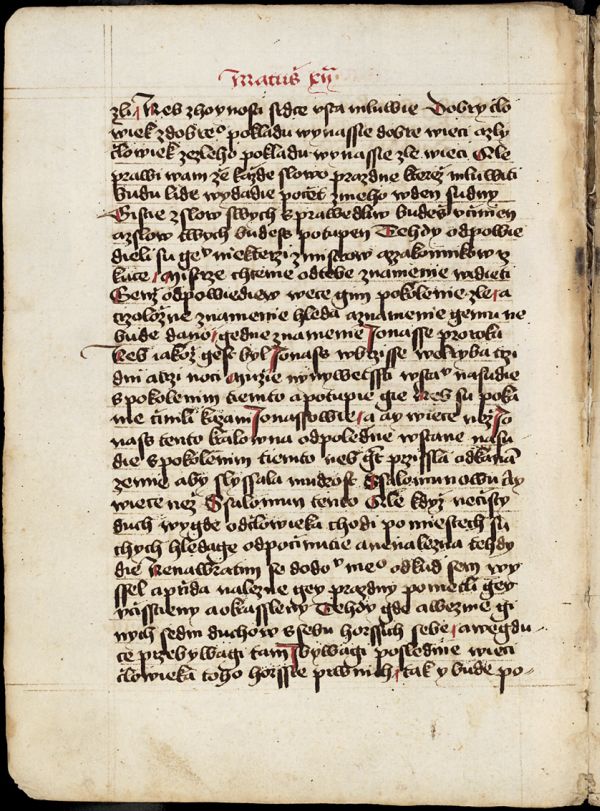 Matuss xii
zli Neb z hoynosti srdce vsta mluwie Dobry clo
wiek z dobreo pokladu wynassie dobre wieci a zly
clowiek ze zleho pokladu wynassie zle wieci Ale
prawi wam ze kazde slowo prazdne kterez mluwiti
budu lide wydadie pocet z nieho w den sudny
z slow swych sprawedliw budess vcinien
a z slow twych budess potupen Tehdy odpowie
dieli su geu niekterzi z mistrow a zakonnikow rz
kuce Mistrze chceme od tebe znamenie widieti
Genz odpowiediew wece gim pokolenie zle a
czolozne znamenie hleda a znamenie gemu ne
bude dano gedne znamenie Jonasse proroka
Neb iakoz gest byl Jonass w brzisse weloryba trzi
dni a trzi noci Muzie nynywetssti wstau na sudie
s pokolenim tiemto a potupie gie Neb su poka
nie cinili kazanim Jonassowie a ay wiece nez Jo
nass tento kralowna od poledne wstane na su
die s pokolenim tiemto neb gt przissla od kraian
zemie aby slyssala mudrost Ssalomunowu Ay
wiece nez Ssalomun tento Ale kdyz necisty
duch wygde od clowieka chodi po miestech su
chych hledage odpocinutie a nenalezna tehdy
die Nawratim se do dou meo odkud sem wy
ssel a prida nalezne gey prazdny pometli gey
vcisstieny a okrasleny Tehdy gde a wezme gi
nych sedm duchow s sebu horssich sebe a wegdu
ce przebywagi tam bywagi posledme wieci
clowieka toho horssie prwnich tak y bude po